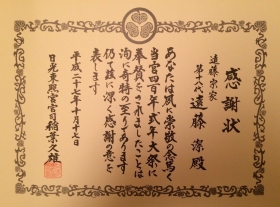 感謝状
遠藤宗家
第十八代 遠藤 潔殿
あなたは夙に崇敬の念篤く
当宮四百年式年大祭に
奉賛をされましたことは
洵に奇特の至りであります
仍て茲に深く感謝の意を
表します
平成二十七年十月十七日
日光東照宮宮司 稲葉久雄